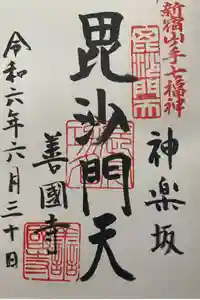 新宿山手七福神
神楽坂
毘沙門天
善國寺
令和六年六月三十日